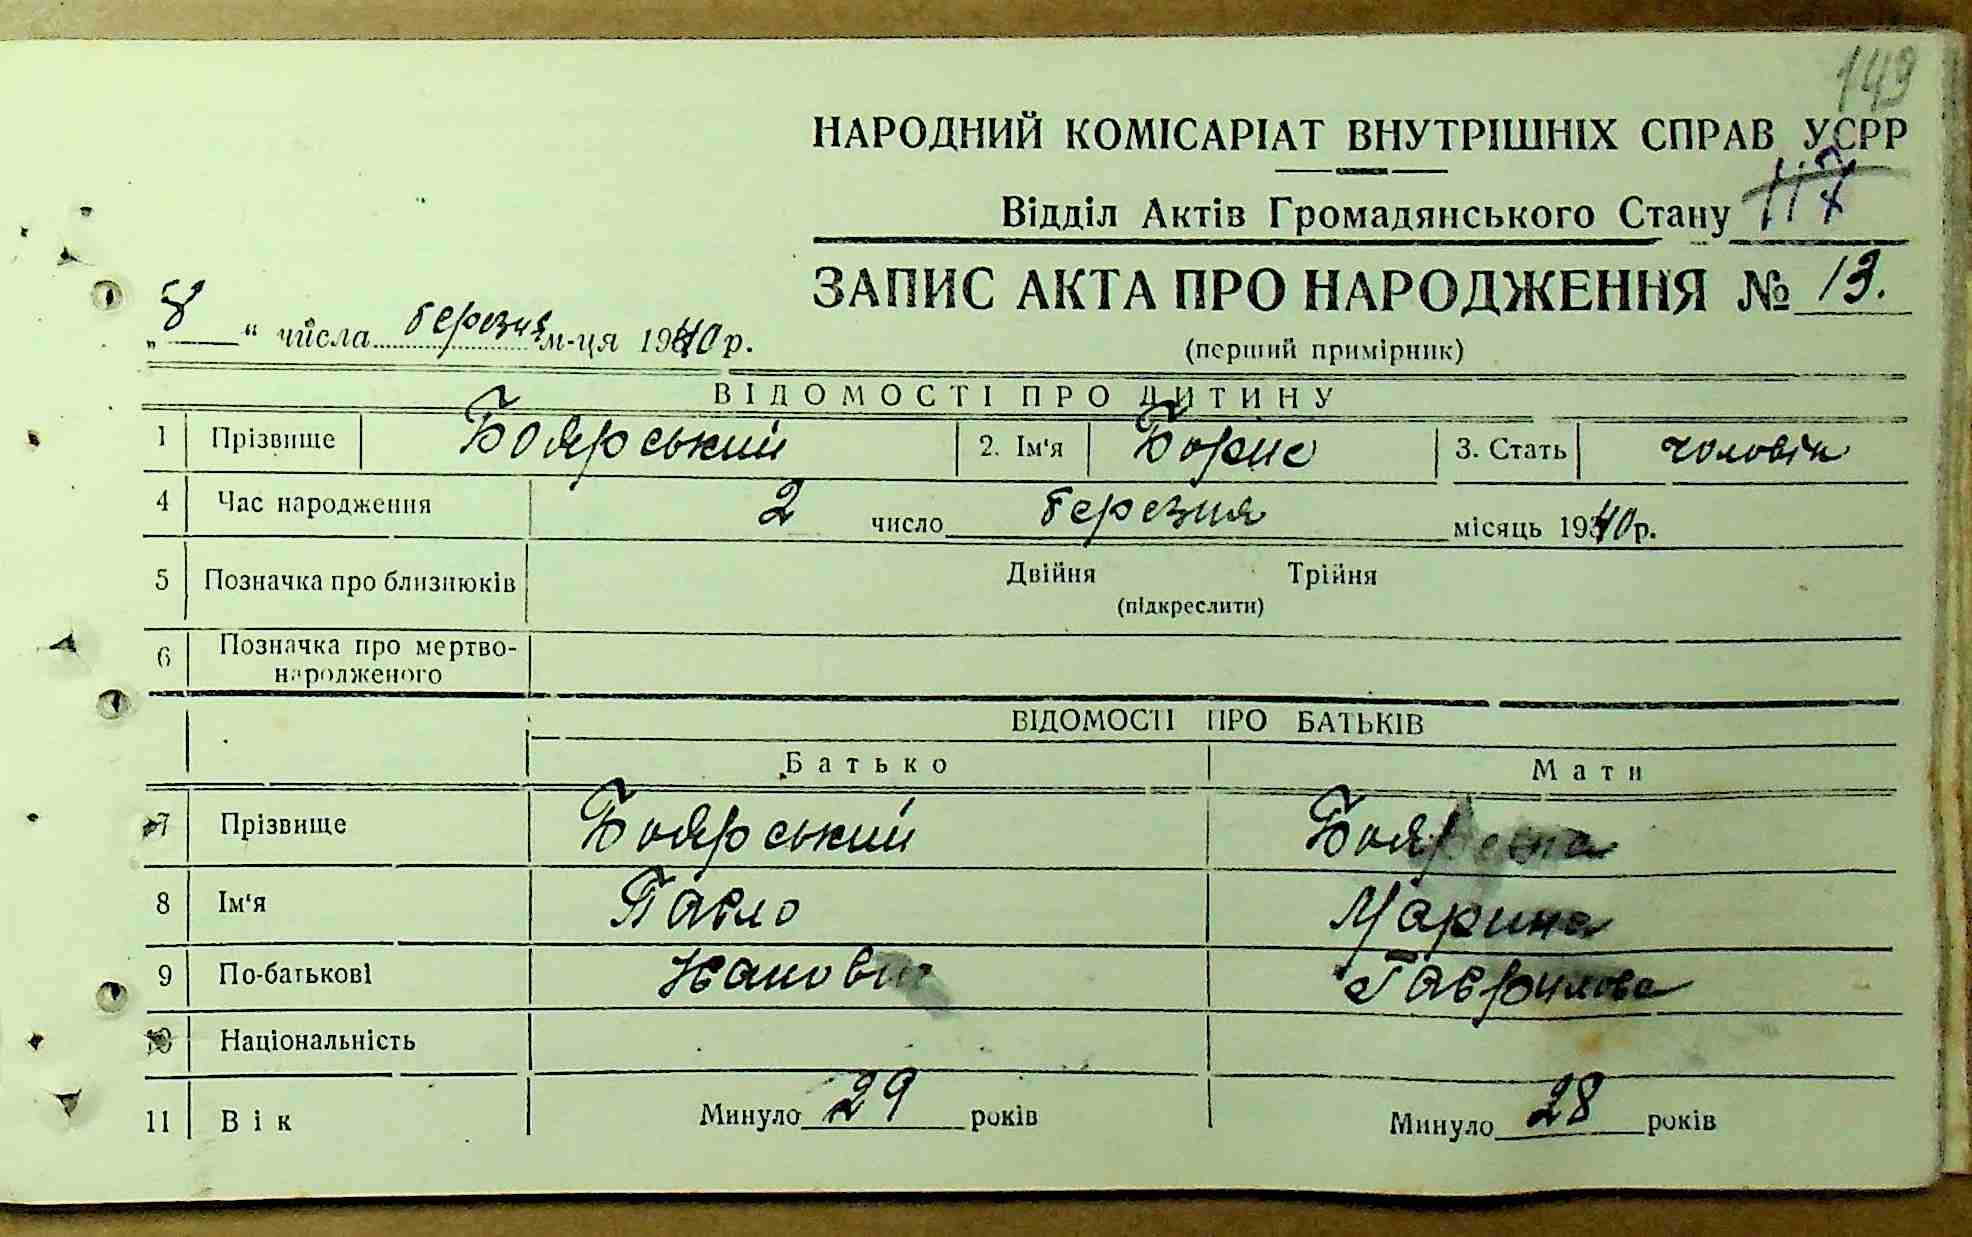 149
НАРОДНИЙ КОМІСАРІАТ ВНУТРІШНІХ СПРАВ УСРР
Відділ Актів Громадянського Стану
ЗАПИС АКТА ПРО НАРОДЖЕННЯ № 13.
„8“ числа березня м-ця 1940 р.
(перший примірник)
ВІДОМОСТІ ПРО ДИТИНУ
1 Прізвище Боярський 2. Ім'я Борис 3. Стать чоловік
4 Час народження 2 число березня місяць 1940 р.
5 Позначка про близнюків Двійня Трійня
(підкреслити)
6 Позначка про мертво-
народженого
ВІДОМОСТІ ПРО БАТЬКІВ
Батько Мати
7 Прізвище Боярський
8 Ім'я Павло Марина
9 По-батькові Гаврилова
10 Національність
11 Вік Минуло 29 років Минуло 28 років